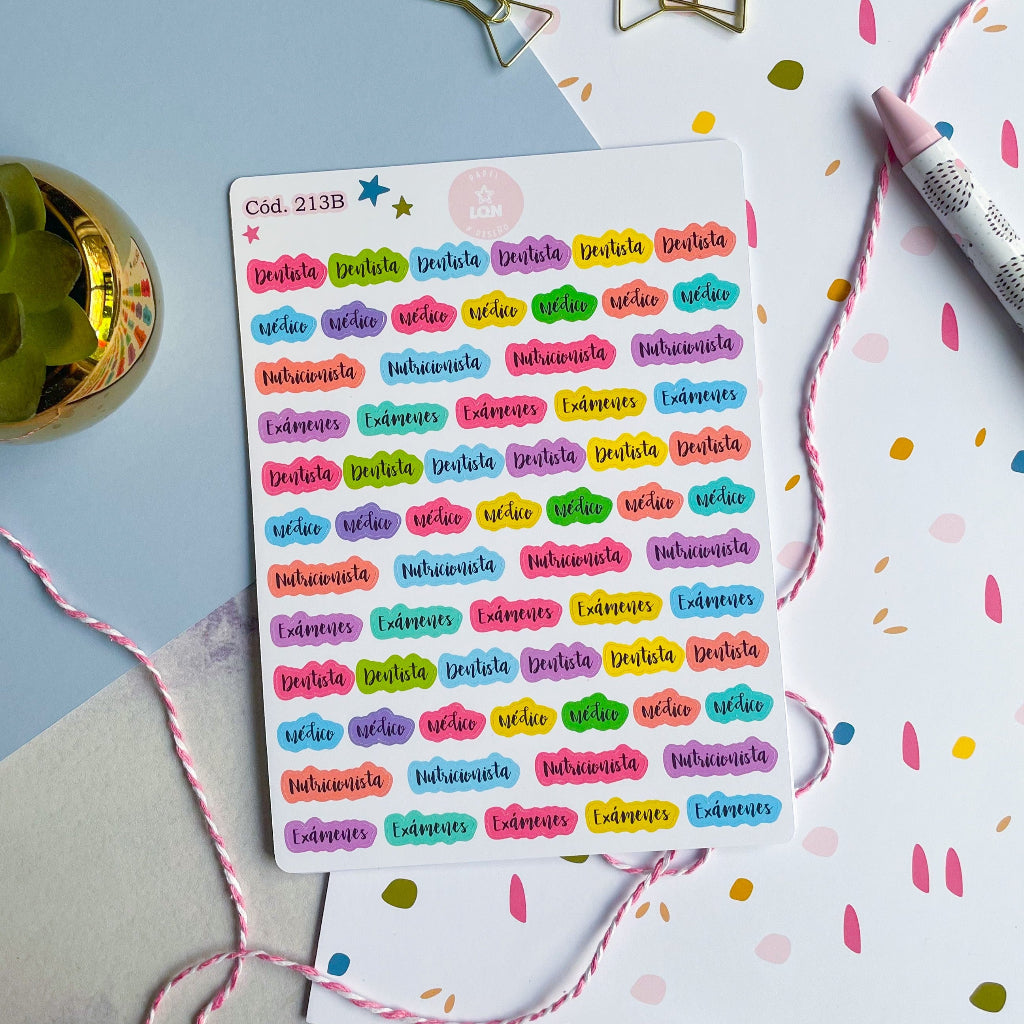 Cód. 213B
PAPEL
LQN
& DISEÑO
Dentista Dentista Dentista Dentista Dentista Dentista
Médico Médico Médico Médico Médico Médico Médico
Nutricionista Nutricionista Nutricionista Nutricionista
Exámenes Exámenes Exámenes Exámenes Exámenes
Dentista Dentista Dentista Dentista Dentista Dentista
Médico Médico Médico Médico Médico Médico Médico
Nutricionista Nutricionista Nutricionista Nutricionista
Exámenes Exámenes Exámenes Exámenes Exámenes
Dentista Dentista Dentista Dentista Dentista Dentista
Médico Médico Médico Médico Médico Médico Médico
Nutricionista Nutricionista Nutricionista Nutricionista
Exámenes Exámenes Exámenes Exámenes Exámenes